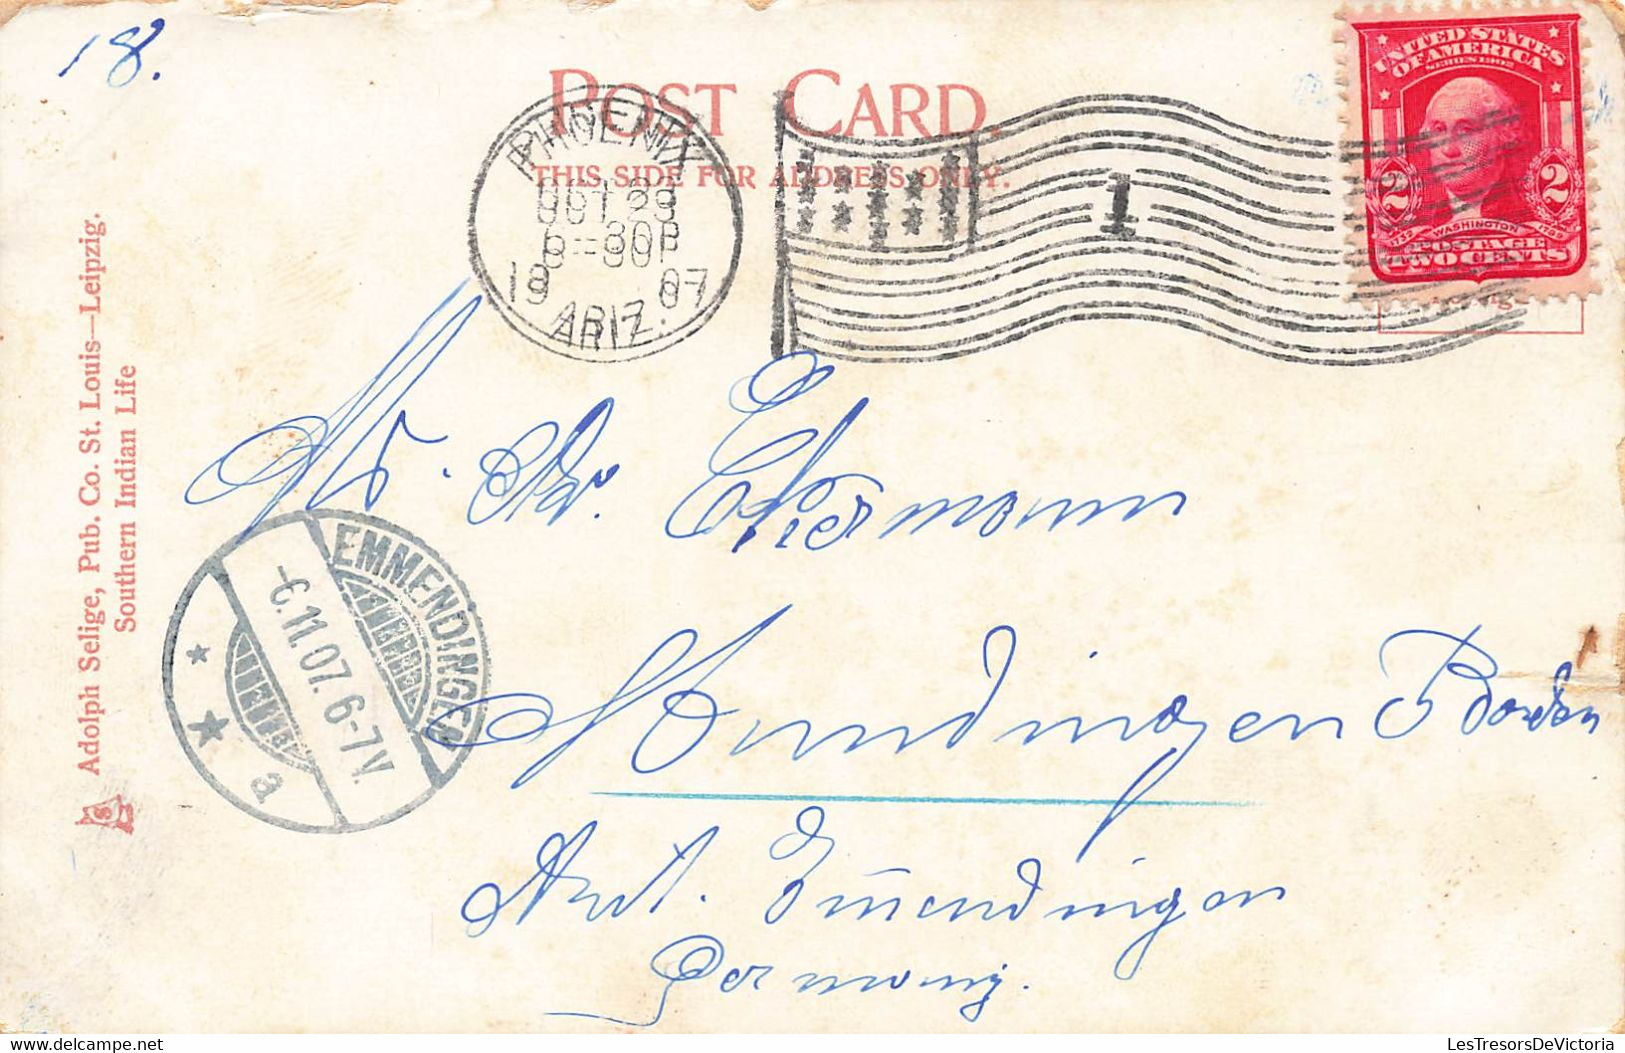 18.
POST CARD.
THIS SIDE FOR ADDRESS ONLY.
PHOENIX
OCT 29
6-30P
19 07
ARIZ.
1
UNITED STATES
OF AMERICA
SERIES 1902
2 2
1732 WASHINGTON 1799
POSTAGE
TWO CENTS
Adolph Selige, Pub. Co. St. Louis—Leipzig.
Southern Indian Life
EMMENDINGEN
-6.11.07. 6-7V.
a
Mundingen Baden
Amt. Emendingen
Germany.
Delcampe.net
LesTresorsDeVictoria